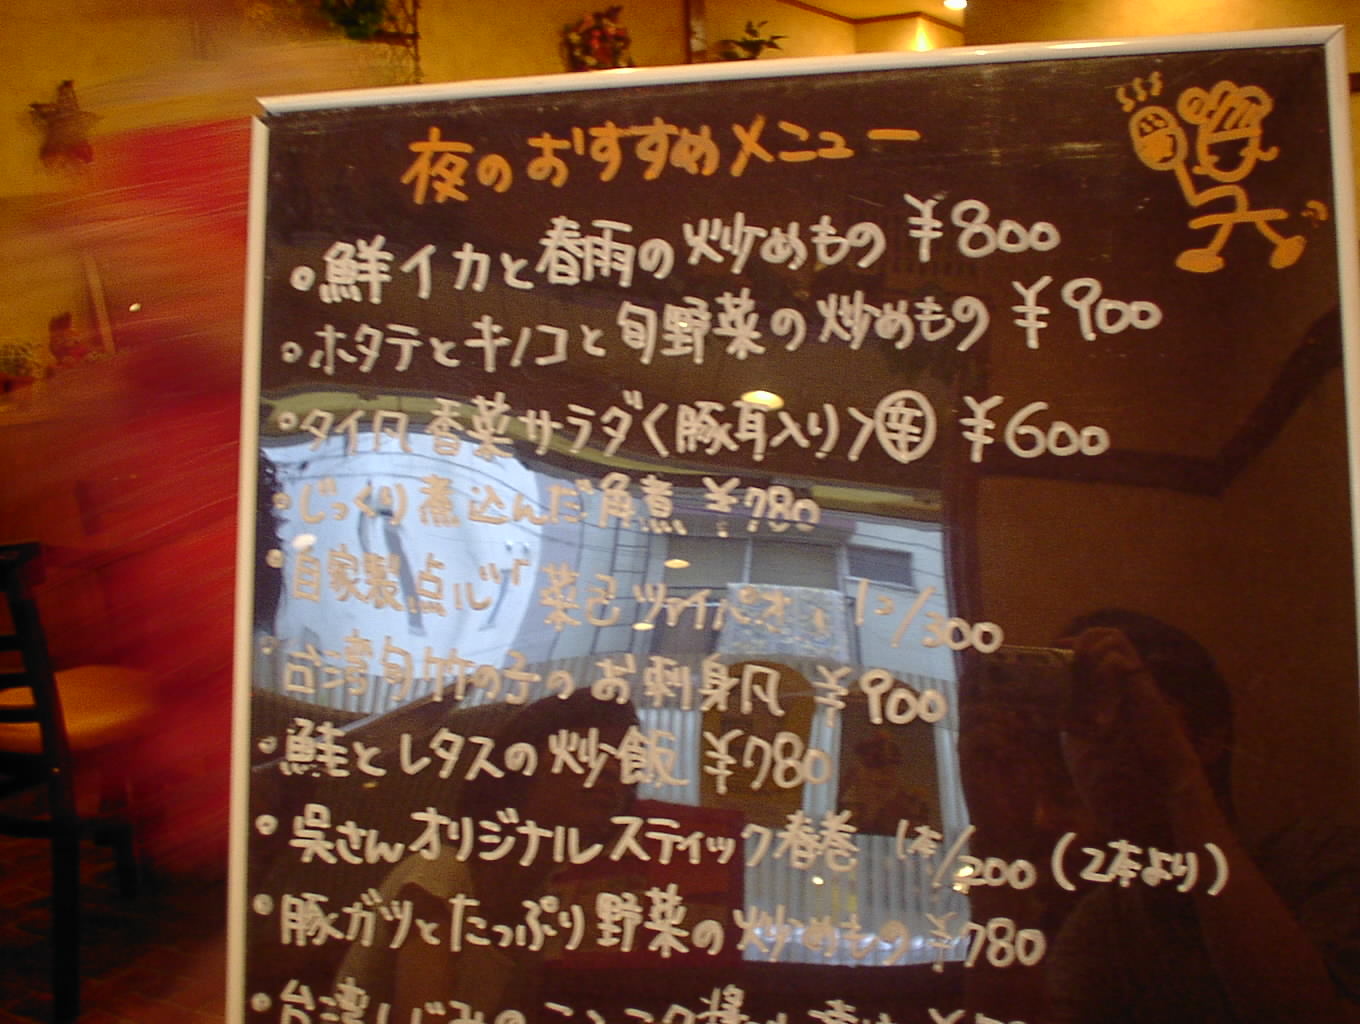 夜のおすすめメニュー
。鮮イカと春雨の炒めもの ¥800
。ホタテとキノコと旬野菜の炒めもの ¥900
。タイ风 香菜サラダ〈豚耳入り〉㊛ ¥600
。じっくり煮込んだ角煮 ¥780
。自家製点心 ツァイパオ 1コ/300
。台湾旬竹の子のお刺身风 ¥900
。鮭とレタスの炒飯 ¥780
。呉さんオリジナルスティック春巻 1本/200 (2本より)
。豚ガツとたっぷり野菜の炒めもの ¥780
。台湾しじみのニンニク醤油漬け